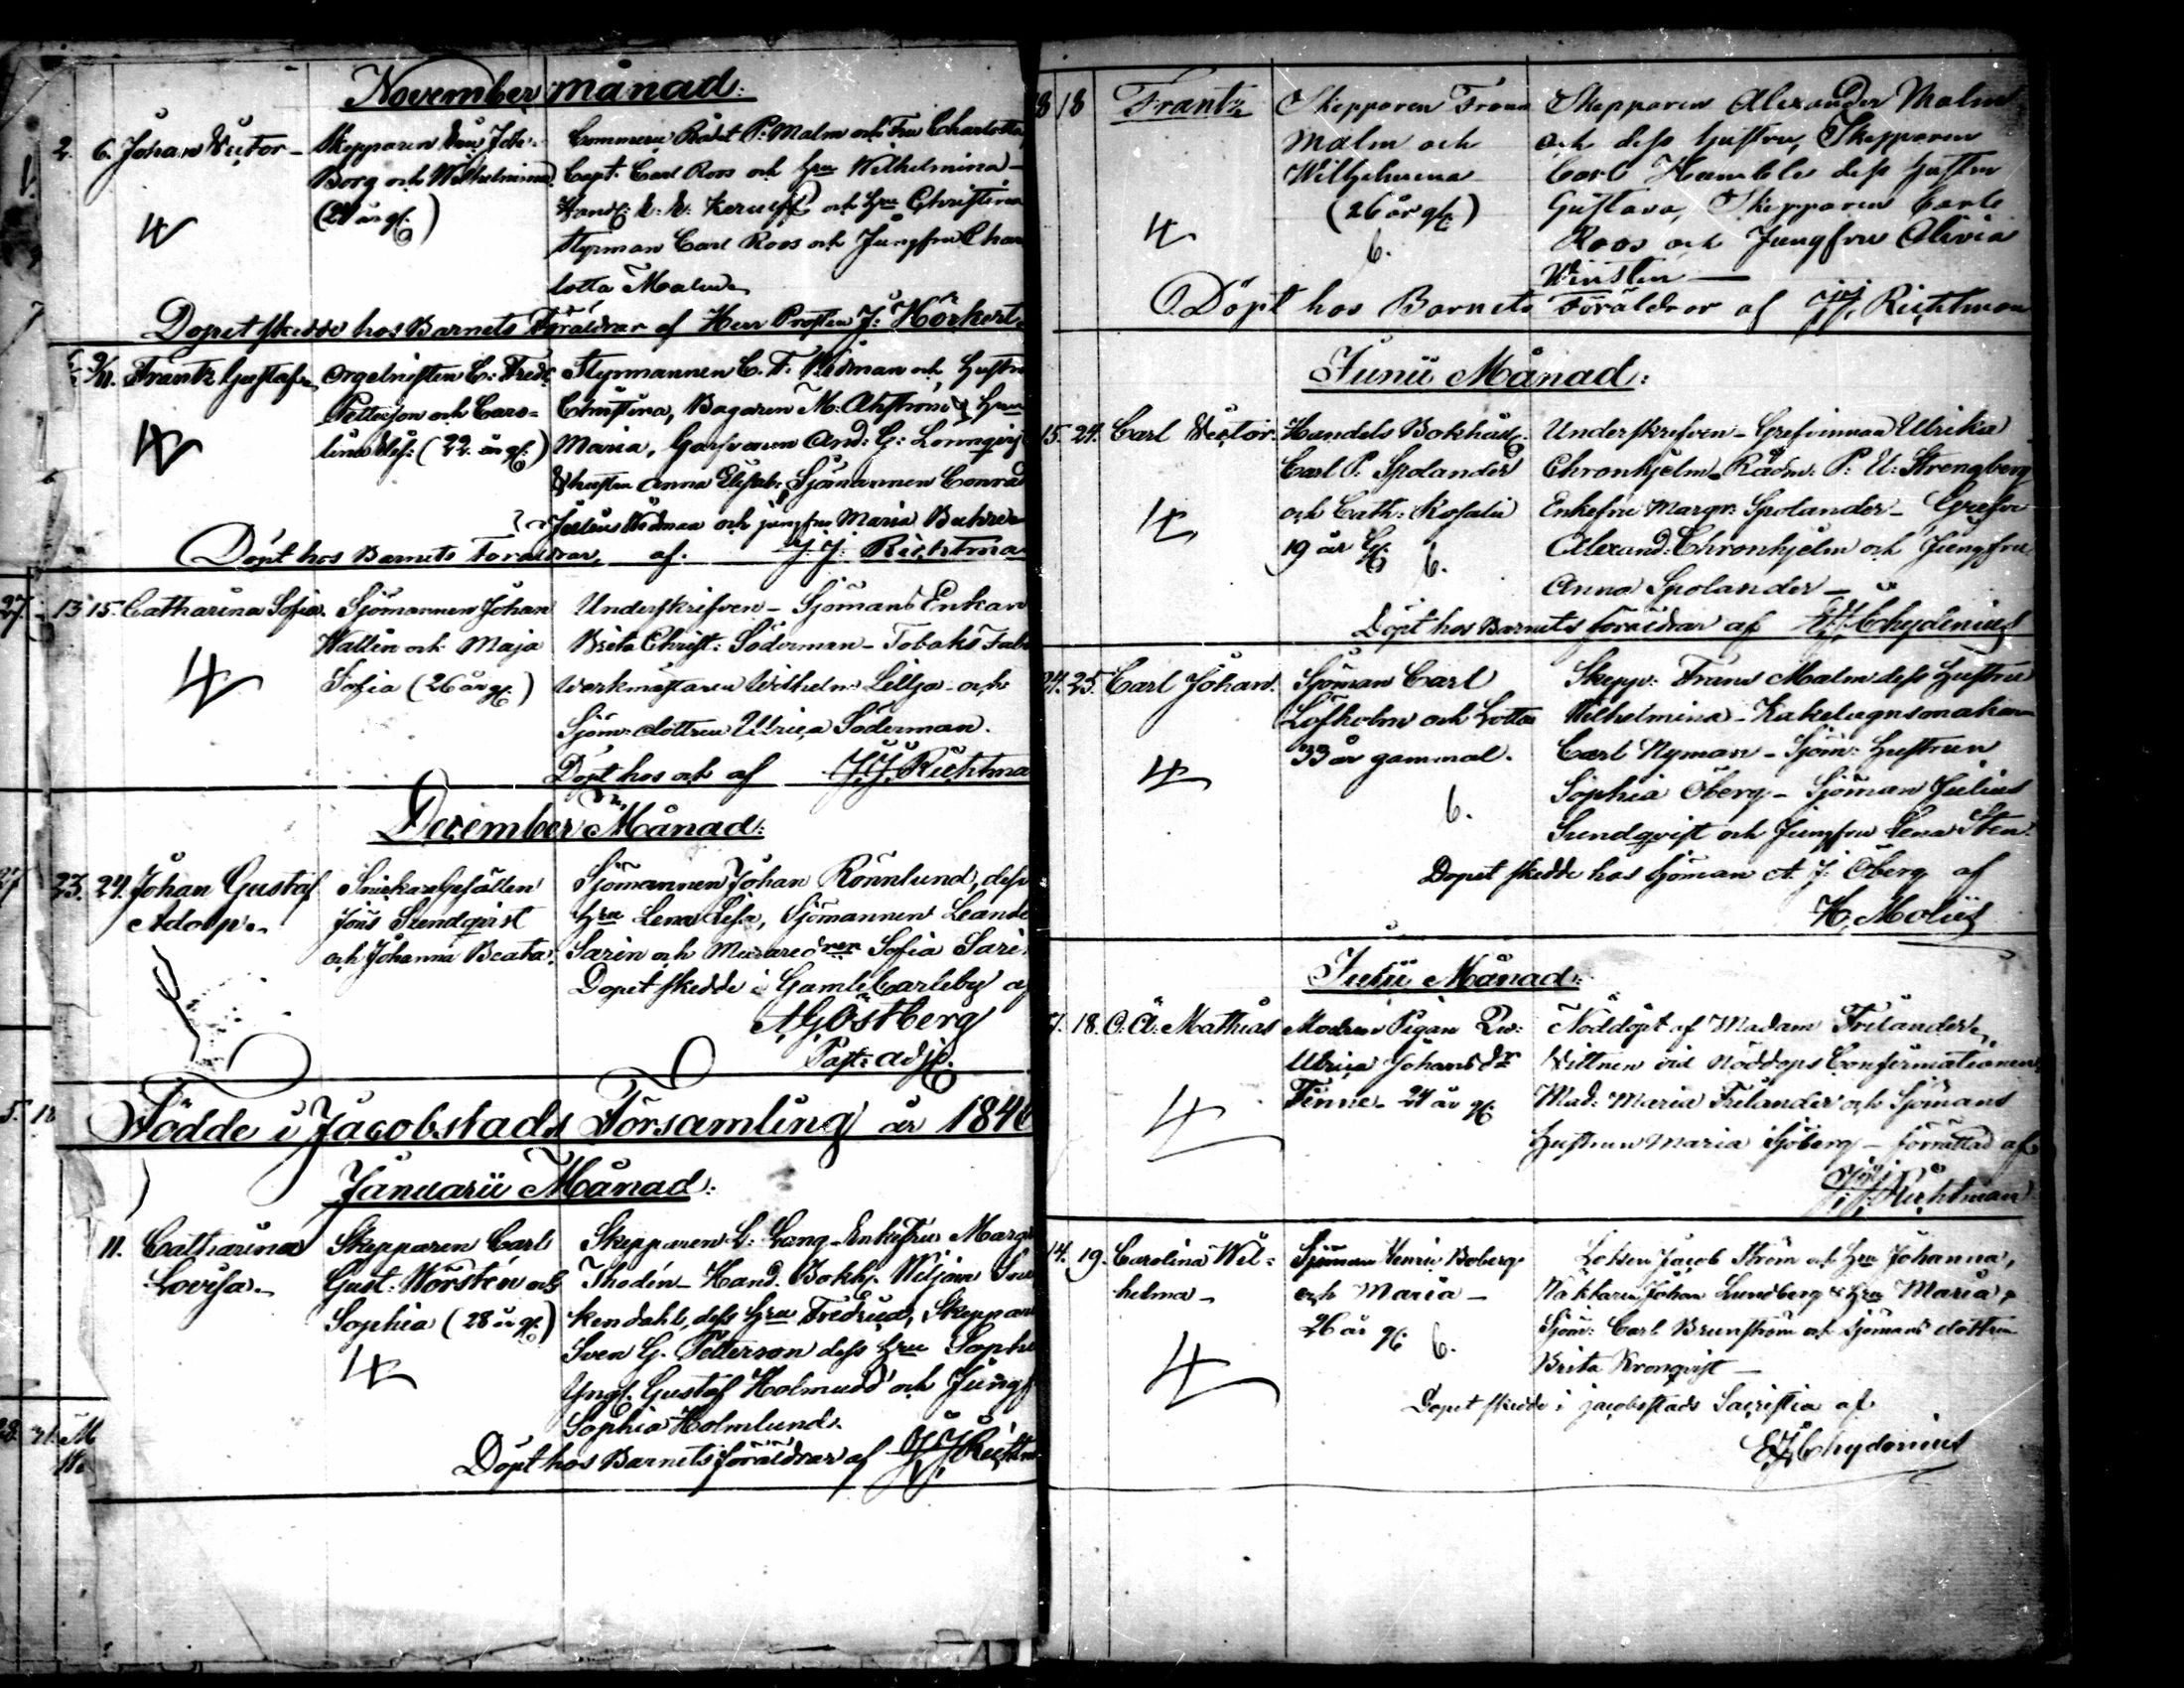 November månad:
2. 6. Johan Victor - Skepparen
Borg och Wilhelmina
(21 år gl.)
Commerce Rådet P. Malm och Fru Charlotta
Capt. Carl Roos och Hru Wilhelmina -
och Hru Christina
Styrman Carl Roos och Jungfru Char
lotta Malm
Dopet skedde hos Barnets Föräldrar af Herr Prosten J: Hörkert
9/11. Frantz Gustaf Orgelnisten C: Fredr
Petterson och Caro=
lina (22 år gl.)
Styrmannen C. F. Widman och Hustru
Christina, Bagaren M: Ahlström & Hru
Maria, Garfvaren And: G: Lönnqvist
& hustru Anna Elisab: Sjömannen Conrad
Julius Widman och jungfru Maria
Döpt hos Barnets Föräldrar af J. J. Richtma
27. 13 15. Catharina Sofia. Sjömannen Johan
Wallin och Maja
Sofia (26 år gl.)
Underskrifven - Sjömans Enkan
Brita Christ: Söderman - Tobaks Fab
Werkmästaren Wilhelm Lillja och
Sjöm: dottren Ulrica Söderman.
Döpt hos och af J.J. Richtma
December Månad:
27 23. 24. Johan Gustaf
Adolp.
Snickare Gesällen
Jons Sundqvist
och Johanna Beata.
Sjömannen Johan Rönnlund, dess
Hru Lena Lisa, Sjömannen Leande
Sarin och Sofia Sari
Dopet skedde i Gamlecarleby af
A G Östberg
Past: adj.
5. 18
Födde i Jacobstads Församling år 1846
Januarii Månad:
11. Catharina
Lovisa.
Skepparen Carl
Gust. Norstén och
Sophia (28 år gl.)
Skepparen L: Lang - Enkefru Marg
Thodén - Hand. Bokh. Wiljam
kendahl, dess Hru Fredrica, Skeppare
Sven G. Petterson dess Hru Sophi
Yngl. Gustaf Holmlund och Jungf
Sophia Holmlund.
Döpt hos Barnets föräldrar af J J Richtm
18 18 Frantz Skepparen Frans
Malm och
Wilhelmina
(26 år gl.)
6.
Skepparen Alexander Malm
och dess hustru, Skepparen
Carl Humble dess hustru
Gustava, Skepparen Carl
Roos och Jungfru Olivia
Winsten -
Döpt hos Barnets Föräldrar af J.J. Richtman
Junii Månad:
15. 24. Carl Victor. Handels Bokhåll.
Carl P. Spolander
och Cath: Rosalie
19 år gl. 6.
Underskrifven - Grefvinnan Ulrika
Chronhjelm - Rådm: P: U: Strengberg
Enkefru Margr: Spolander - Grefve
Alexand: Chronhjelm och Jungfru
Anna Spolander -
Döpt hos Barnets föräldrar af Chydenius
24. 25. Carl Johan. Sjöman Carl
Löfholm och Lotta
33 år gammal.
6.
Skepp: Frans Malm dess Hustru
Wilhelmina - Kakelugnsmakaren
Carl Nyman - Sjöm: Hustrun
Sophia Öberg - Sjöman Julius
Sundqvist och Jungfru Lena Sten.
Dopet skedde hos Sjöman A. J: Öberg af
H. Molin
Julii Månad:
18. O. Ä. Mathias Modren Pigan
Ulrica Johansdr
Finne - 24 år gl.
Nöddöpt af Madam Frilander
Vittnen vid Nöddops Confirmationen
Mad: Maria Frilander och Sjömans
Hustrun Maria Sjöberg - förrättad af
J.J. Richtman
14. 19. Carolina Wil=
helma -
Sjöman Henric Boberg
och Maria -
26 år gl. 6.
Lotsen Jacob Ström och Hru Johanna,
Johan Lundberg & Hru Maria,
Sjöm: Carl Brunström och Sjömans dottren
Brita Kronqvist -
Dopet skedde i Jacobstads Sacristia af
Chydenius